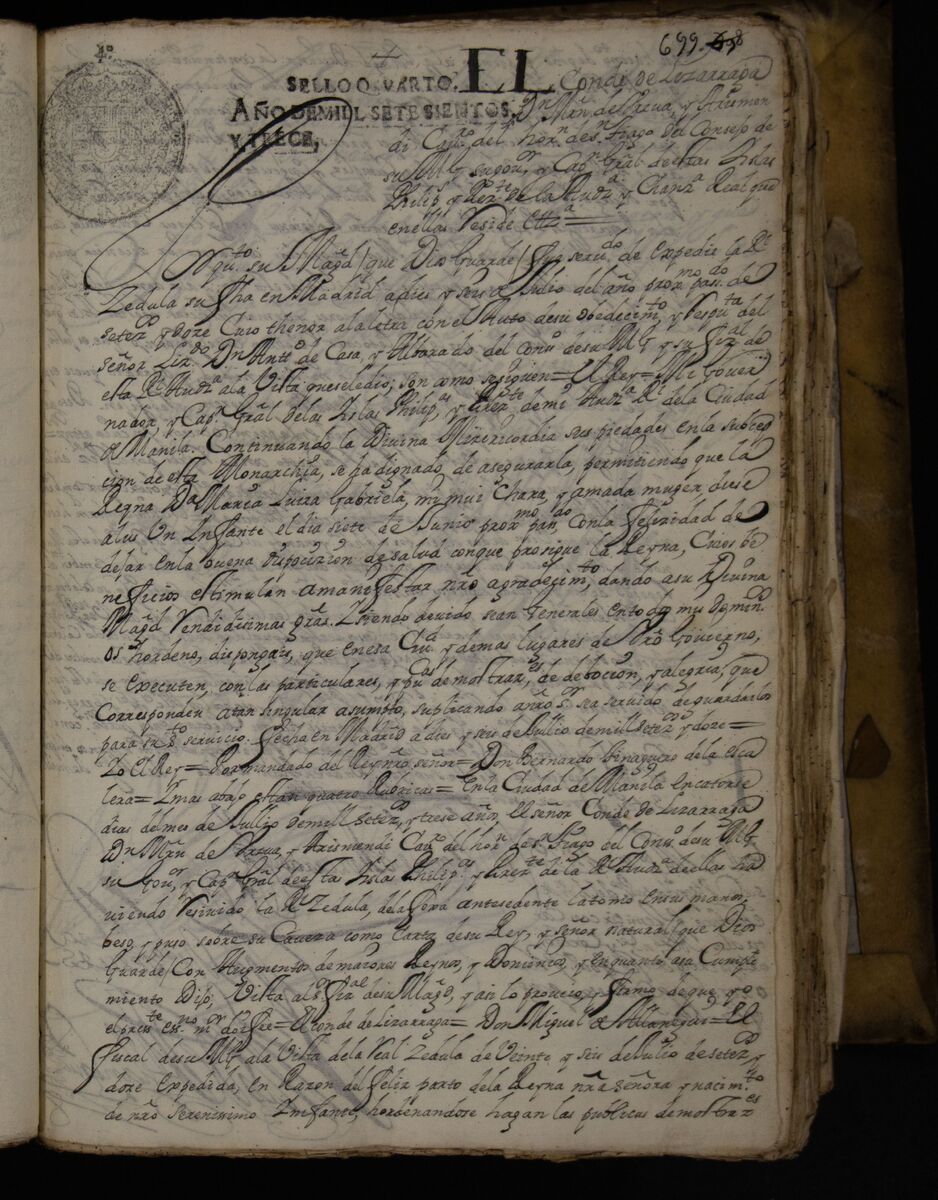 4º
699 698
SELLO QVARTO, EL Conde de Lizarraga
AÑO DE MIL Y SETESIENTOS, Dn Mrn de Vrsua, y Arismen
Y TRECE, di Cavº del horn de Sn Tiago del Consejo de
su Mg su govor, y Capn Gral de estas Islas
Philips y Prezte de la Audª y Chanzª Real que
en ellas Reside Etta
Por qto su Magd (que Dios Guarde) fue servdo de expedir la Rl
Zedula su fha en Madrid a dies y seis de Julio del año proxmo pasado de
setezos y doze Cuio thenor a la letra con el Auto de su obedecimto, y Respta del
señor Lizdo Dn Antto de Casa, y Albarado del Cono de su Mg y su fizal de
esta Rl Audª a la Vista que se le dio; son como se siguen = El Rey = Mi Gover
nador, y Capn Gral de las Islas Philipas, y Prezte de mi Audª Rl de la Ciudad
de Manila. Continuando la Divina Misericordia sus piedades en la subce
cion de esta Monarchia, se ha dignado de asegurarla, permitiendo que la
Reyna Dª Maria Luiza Gabriela, mi mui Chara, y amada muger, diese
a lus Un Infante el dia siete de Junio proxmo pando, con la felizidad de
dejar en la buena disposicion de salud con que prosigue la Reyna, Cuios be
neficios estimulan a manifestar nro agradecimto, dando a su Divina
Magd Rendidisimas gras. Y siendo devido sean Generales en todos mis Dominos
os hordeno, dispongais, que en esa Ciud y demas lugares de Vro Govierno,
se executen, con las particulares, y pucas demostraes, de devocion, y alegria, que
Corresponden a tan singular asumpto, suplicando a nro Sr sea servido de guardarlos
para su sto servicio. Fecha en Madrid a dies y seis de Jullio de mill setezos y doze =
Yo El Rey = Por mandado del Rey nro señor = Don Bernardo Tinaguero de la Esca
lera = Y mas abajo estan quatro Rubricas = En la Ciudad de Manila en catorse
dias del mes de Jullio de mill setezos, y trese años, El señor Conde de Lizarraga
Dn Mrn de Vrsua, y Arismendi Cavº del horn de Sn Tiago del Cono de su Mg
su gouor, y Capn Gral de estas Islas Philipas y Prezte de la Rl Audª de ellas ha
uiendo Resivido la Rl Zedula, de la foxa antesedente la tomo en sus manos,
beso, y puso sobre su Caveza como Carta de su Rey, y señor natural (que Dios
Guarde) Con Augmentos de mayores Reynos, y Dominios, y en quanto a su Cumpli
miento Dijo, Vista al sr fizal de su Magd, y asi lo proveio, y firmo de que yo
el preste essno mor doy fee = El Conde de Lizarraga = Don Miguel de Allanegui = El
Fiscal de su Mg a la Vista de la Real Zedula de Veinte y seis de Jullio de setezos y
doze expedida, en Razon del feliz parto de la Reyna nra señora y nacimto
de nro serenisimo Infante, hordenandose hagan las publicas demostraes